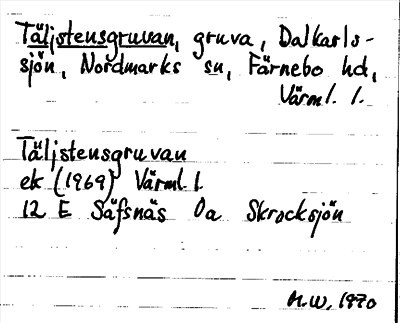 Täljstensgruvan, gruva, Dalkarls-
sjön, Nordmarks sn, Färnebo hd,
Värml. l.
Täljstensgruvan
ek (1969) Värml. l.
12 E Säfsnäs 0a Skrocksjön
M.W. 1970